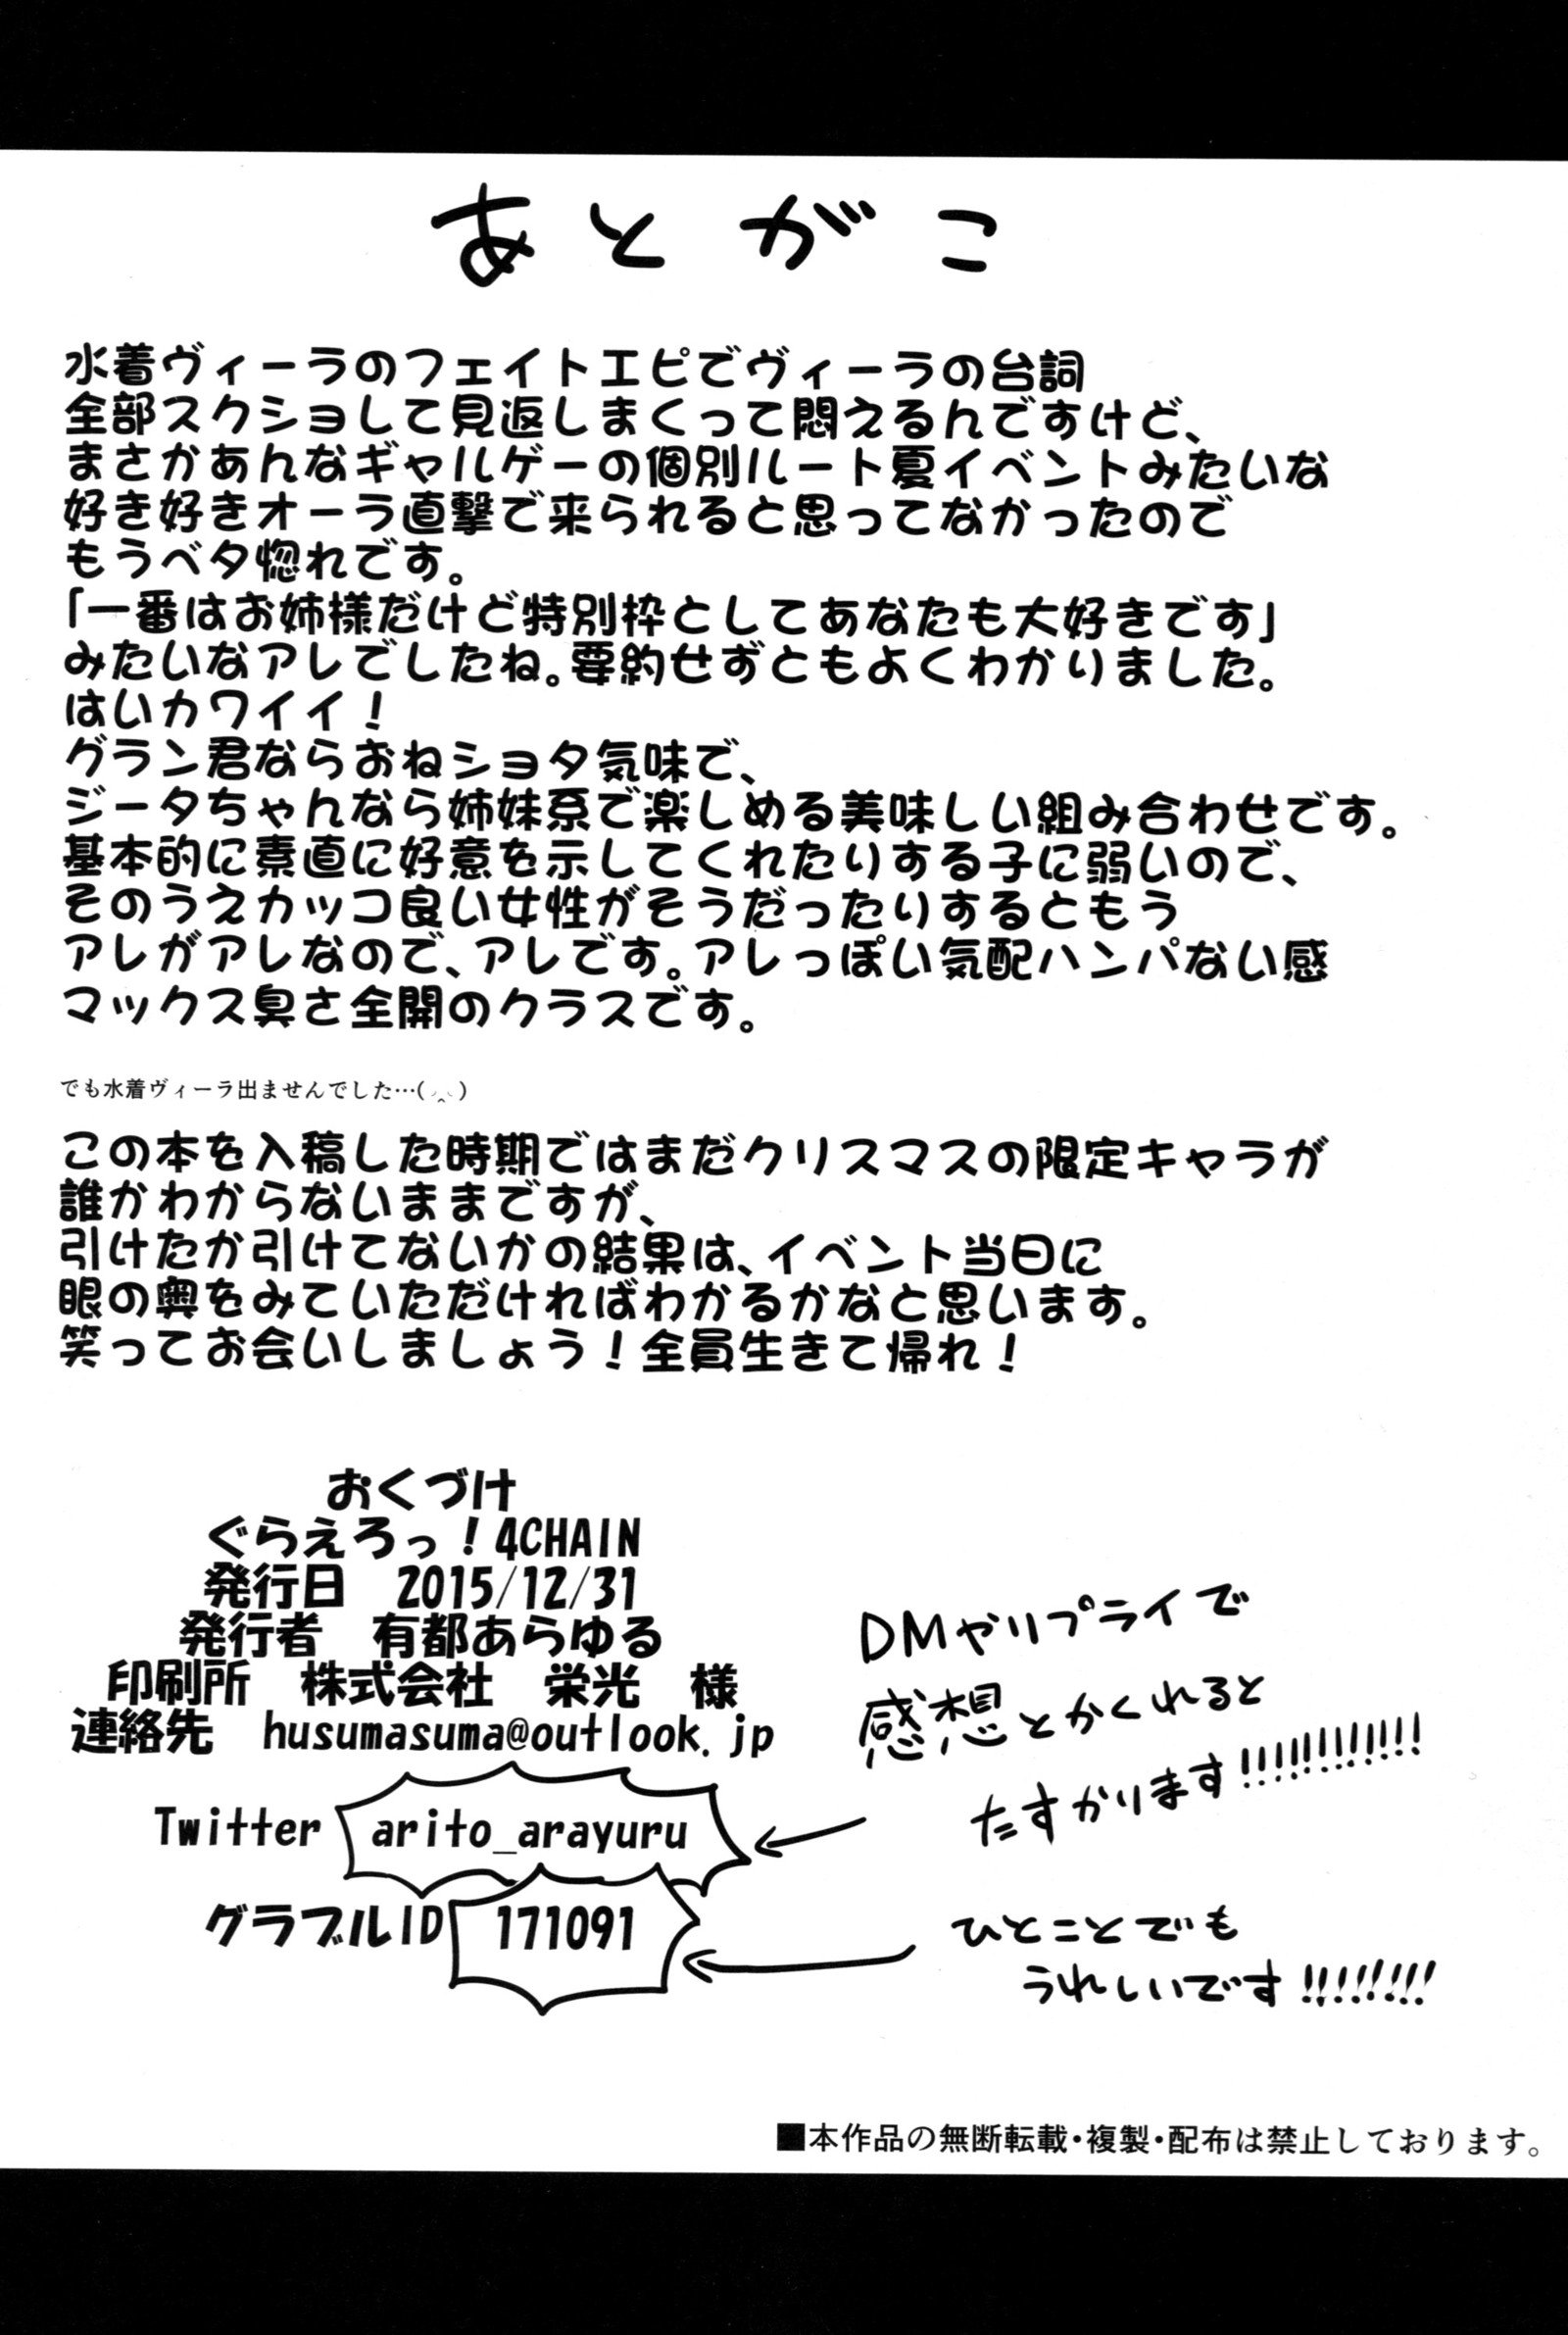 あとがこ
水着ヴィーラのフェイトエピでヴィーラの台詞
全部スクショして見返しまくって悶えるんですけど、
まさかあんなギャルゲーの個別ルート夏イベントみたいな
好き好きオーラ直撃で来られると思ってなかったので
もうベタ惚れです。
「一番はお姉様だけど特別枠としてあなたも大好きです」
みたいなアレでしたね。要約せずともよくわかりました。
はいカワイイ！
グラン君ならおねショタ気味で、
ジータちゃんなら姉妹系で楽しめる美味しい組み合わせです。
基本的に素直に好意を示してくれたりする子に弱いので、
そのうえカッコ良い女性がそうだったりするともう
アレがアレなので、アレです。アレっぽい気配ハンパない感
マックス臭さ全開のクラスです。
でも水着ヴィーラ出ませんでした…(◞‸◟)
この本を入稿した時期ではまだクリスマスの限定キャラが
誰かわからないままですが、
引けたか引けてないかの結果は、イベント当日に
眼の奥をみていただければわかるかなと思います。
笑ってお会いしましょう！全員生きて帰れ！
おくづけ
ぐらえろっ！4CHAIN
発行日　2015/12/31
発行者　有都あらゆる
印刷所　株式会社　栄光　様
連絡先　husumasuma@outlook.jp
Twitter arito_arayuru
グラブルID 171091
DMやリプライで
感想とかくれると
たすかります!!!!!!!!!!!!
ひとことでも
うれしいです!!!!!!!!
■本作品の無断転載・複製・配布は禁止しております。